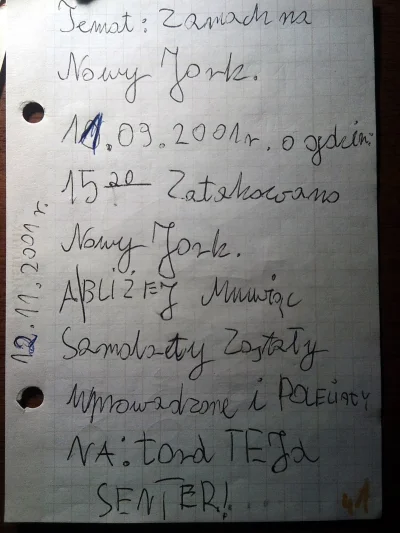 Temat: Zamach na
Nowy Jork.
11.09.2001r. o godzin:
15 20 Zatakowano
Nowy Jork.
ABLIŻEJ Muwiąc
Samolzety Zostały
Uprowadzone i POLECIAŁY
NA: tord TEJd
SENTER!....
12.11.2001 r.
41